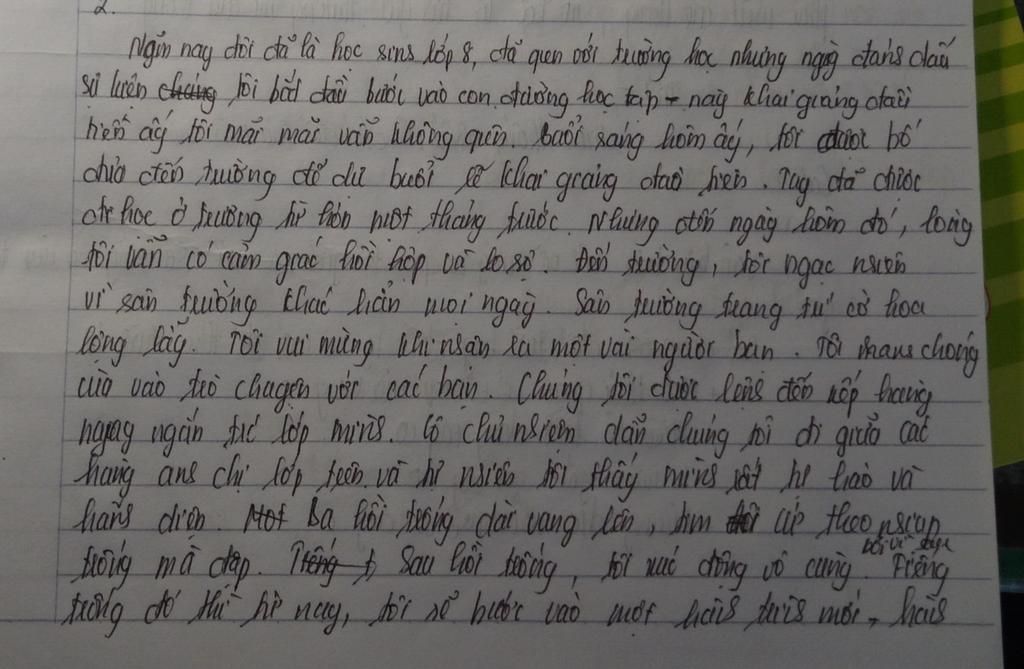 2.
Ngắn nay tôi đã là học sinh lớp 8, đã quen với trường học nhưng ngày đánh dấu
sự kiện tôi bắt đầu bước vào con đường học tập - ngày khai giảng đầu
tiên ấy tôi mãi mãi vẫn không quên. Buổi sáng hôm ấy, tôi được bố
chở đến trường để dự buổi lễ khai giảng đầu tiên. Tuy đã được
đi học ở trường từ hơn một tháng trước. Nhưng đến ngày hôm đó, lòng
tôi vẫn có cảm giác hồi hộp và lo sợ. Đến trường, tôi ngạc nhiên
vì sân trường khác hẳn mọi ngày. Sân trường trang trí cờ hoa
lộng lẫy. Tôi vui mừng khi nhận ra một vài người bạn. Tôi nhanh chóng
ùa vào trò chuyện với các bạn. Chúng tôi được lệnh đến xếp hàng
ngay ngắn từ lớp mình. Cô chủ nhiệm dẫn chúng tôi đi giữa các
hàng anh chị lớp trên và tự nhiên tôi thấy mình rất tự hào và
hãnh diện. Ba hồi trống dài vang lên, tim tôi cứ theo nhịp
trống mà đập. Sau hồi trống, tôi xúc động vô cùng. bởi vì Tiếng
trống đó thì từ nay, tôi sẽ bước vào một hành trình mới, hành